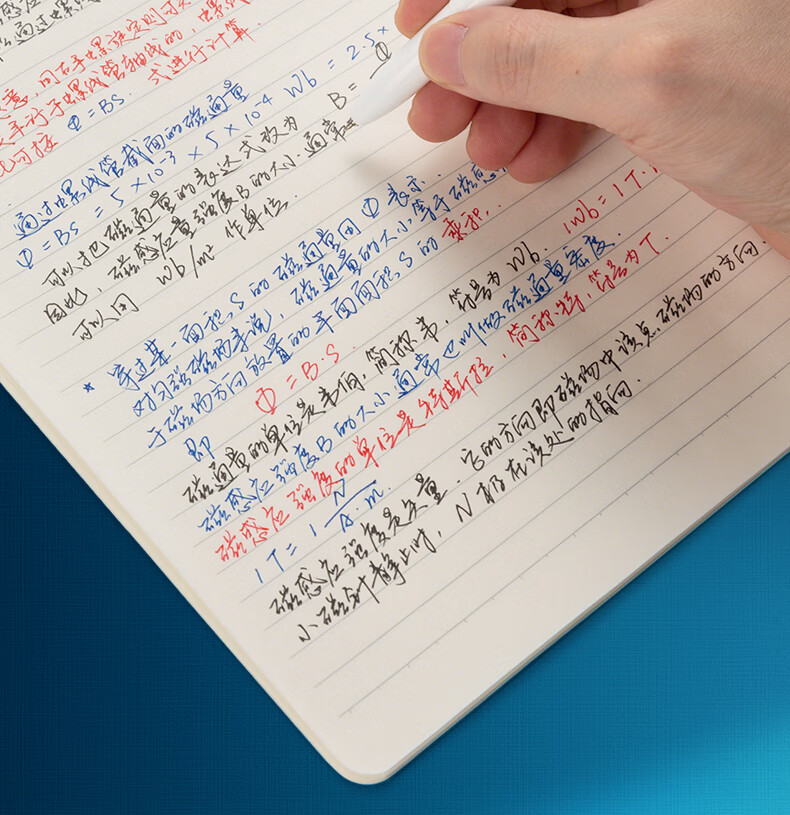 通过螺线
意,用右手螺旋定则可
于螺线管轴线的,螺线
可按 Φ=BS. 式进行计算
通过螺线管截面的磁通量
Φ=BS=5×10-3×5×10-4 Wb=2.5×
可以把磁通量的表达式改为 B=Φ
因此,磁感应量强度B的大小通常
可以用 Wb/m² 作单位.
* 穿过某一面积S的磁通量用Φ表示.
对匀强磁场来说,磁通量的大小等于磁感
于磁场方向放置的平面面积S的乘积..
即 Φ=B·S.
磁通量的单位是韦伯.简称韦,符号为Wb. 1Wb=1T·
磁感应强度B的大小通常也叫做磁通量密度.
磁感应强度的单位是特斯拉,简称特,符号为T.
1T=1 N/A·m.
磁感应强度是矢量.它的方向即磁场中该点磁场的方向.
小磁针静止时,N 在该处的指向.